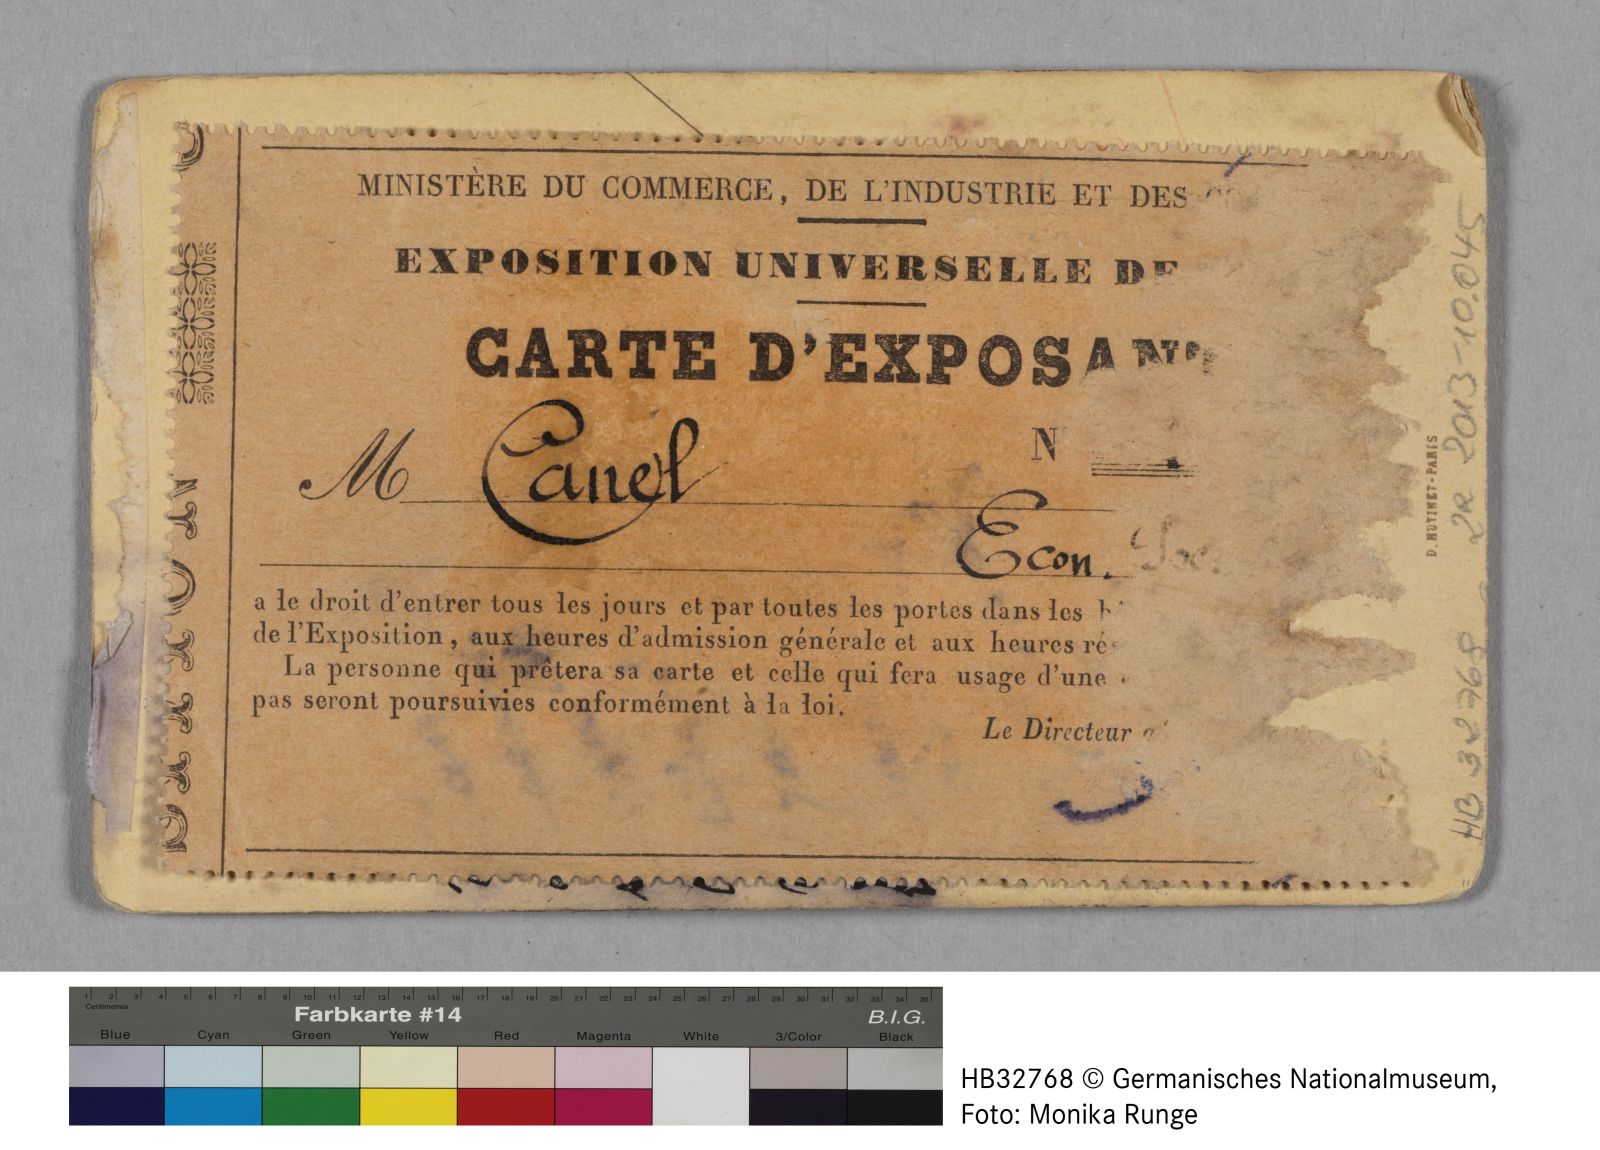 MINISTÈRE DU COMMERCE, DE L'INDUSTRIE ET DES
EXPOSITION UNIVERSELLE DE
CARTE D'EXPOSANT
M Canel
N
Econ. Soc.
a le droit d'entrer tous les jours et par toutes les portes dans les
de l'Exposition, aux heures d'admission générale et aux heures
La personne qui prêtera sa carte et celle qui fera usage d'une
pas seront poursuivies conformément à la loi.
Le Directeur
D. HUTINET-PARIS
HB 32768 ZR 2013-10.045
1 2 3 4 5 6 7 8 9 10 11 12 13 14 15 16 17 18 19 20 21 22 23 24 25 26 27 28 29 30 31 32 33 34 35
Centimetres
Farbkarte #14 B.I.G.
Blue Cyan Green Yellow Red Magenta White 3/Color Black
HB32768 © Germanisches Nationalmuseum,
Foto: Monika Runge